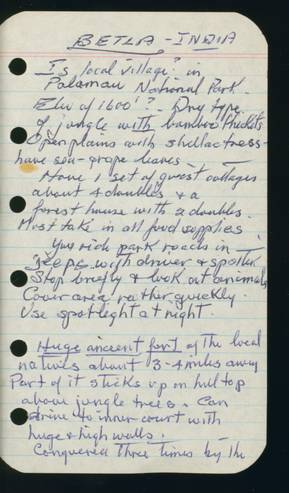 BETLA - INDIA
Is local village? in
Palamau National Park.
Elev of 1600'? - Dry type
of jungle with bamboo thickets
Open plains with shellac trees-
have sea-grape leaves -
Have 1 set of guest cottages
about 4 doubles & a
forest house with 2 doubles.
Must take in all food supplies
You rich park roads in
Jeeps with driver & spotter
Stop briefly & look at animals
Cover area rather quickly.
Use spotlight at night.
Huge ancient fort of the local
natives about 3-4 miles away
Part of it sticks up on hill top
above jungle trees. Can
drive to inner court with
huge & high walls.
Conquered three times by the